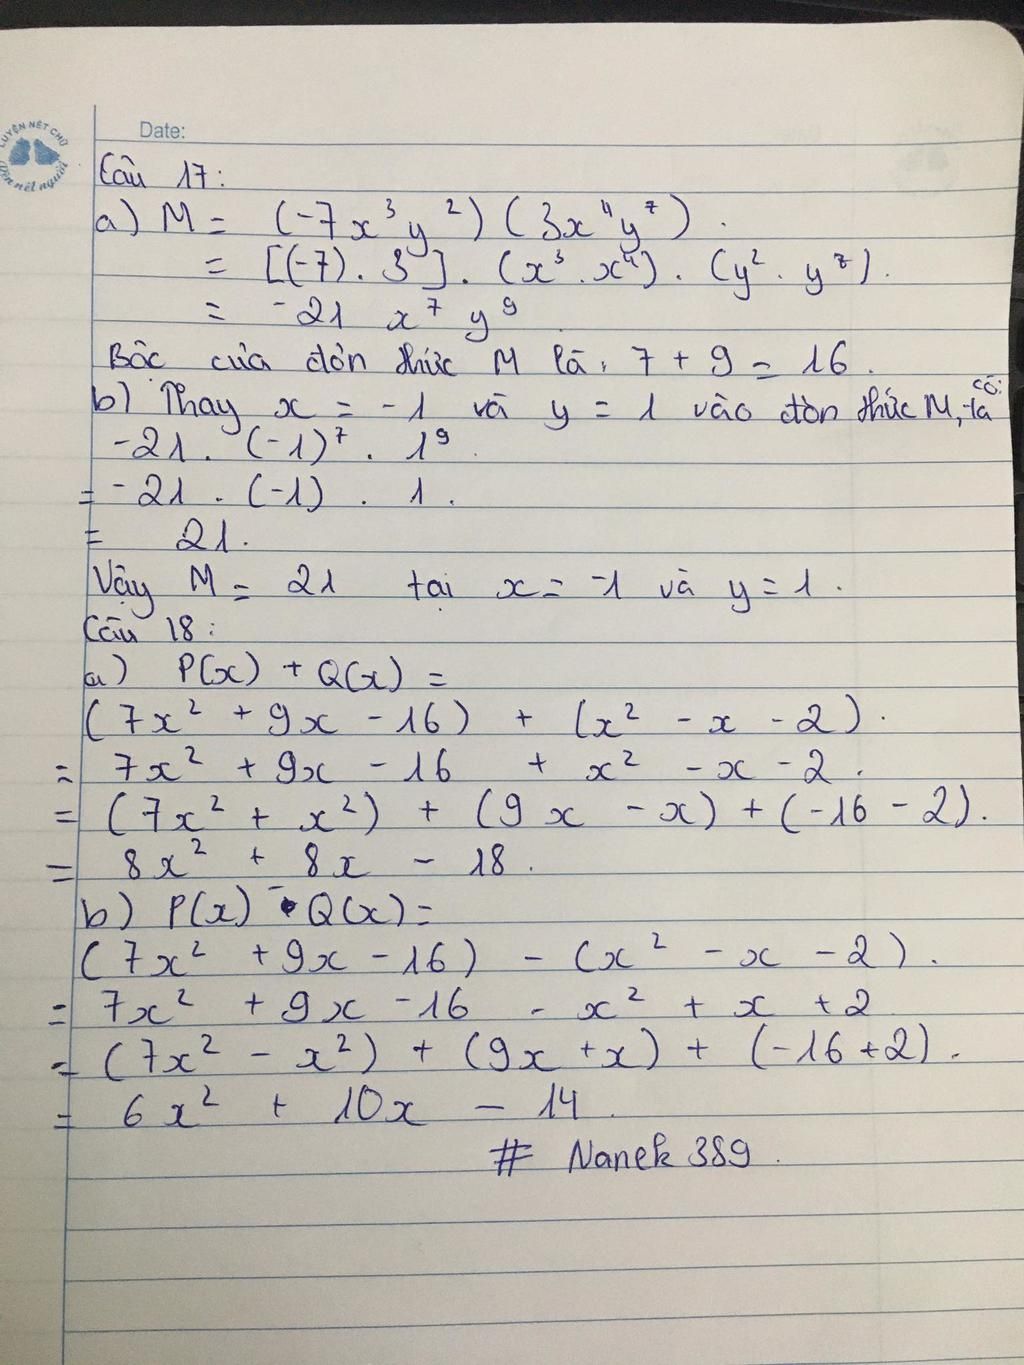 LUYỆN NÉT CHỮ
Rèn nết người
Date:
Câu 17:
a) M = (-7x³y²) (3x⁴y⁷).
= [(-7) . 3] . (x³ . x⁴) . (y² . y⁷).
= -21 x⁷ y⁹
Bậc của đơn thức M là: 7 + 9 = 16.
b) Thay x = -1 và y = 1 vào đơn thức M, ta có:
-21 . (-1)⁷ . 1⁹
= -21 . (-1) . 1.
= 21.
Vậy M = 21 tại x = -1 và y = 1.
Câu 18:
a) P(x) + Q(x) =
(7x² + 9x - 16) + (x² - x - 2).
= 7x² + 9x - 16 + x² - x - 2.
= (7x² + x²) + (9x - x) + (-16 - 2).
= 8x² + 8x - 18.
b) P(x) - Q(x) =
(7x² + 9x - 16) - (x² - x - 2).
= 7x² + 9x - 16 - x² + x + 2
= (7x² - x²) + (9x + x) + (-16 + 2).
= 6x² + 10x - 14.
# Nanek 389.